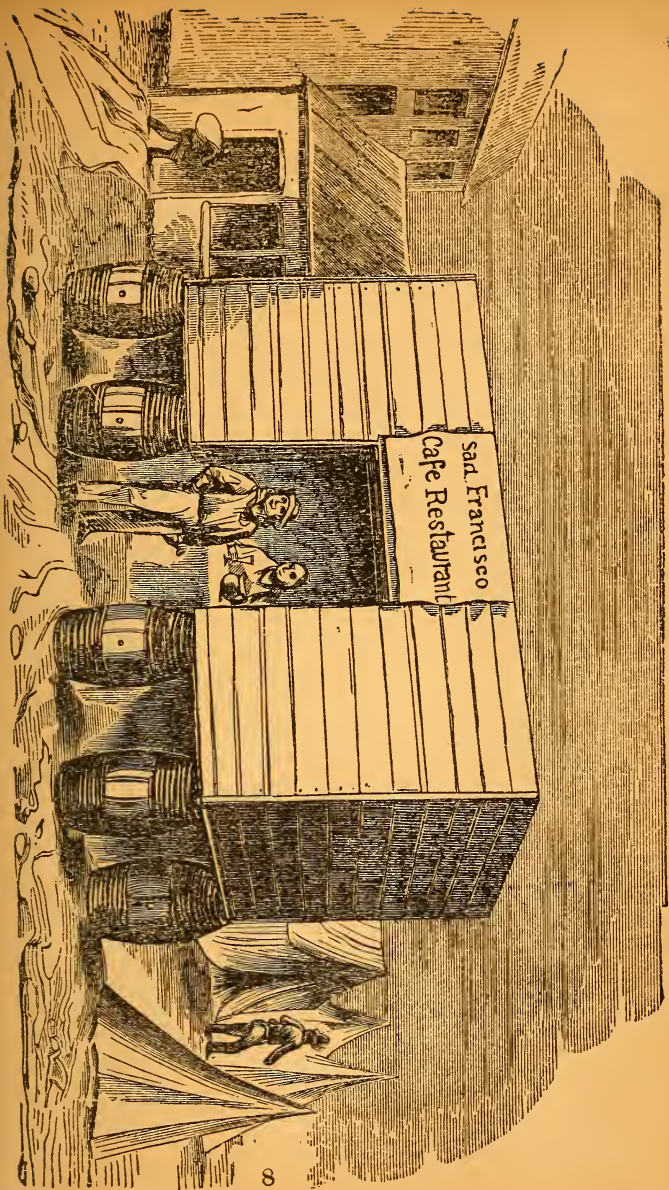 sad. Francisco
Cafe Restaurant
8